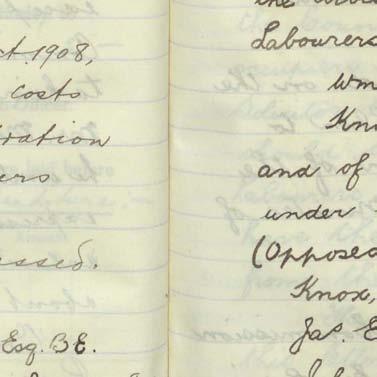 ct. 1908,
costs
ration
ers
essed.
Esq. B.E.
Labourers
Wm
Kno
and of
under
(Opposed
Knox,
Jas. E